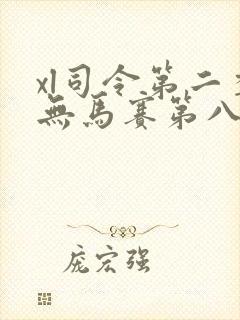 xl司令第二
無馬賽第八
庞宏强